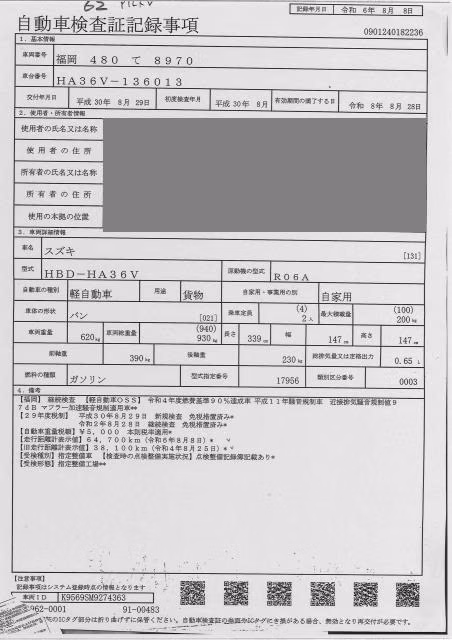 62
記録年月日 令和 6年 8月 8日
自動車検査証記録事項
0901240182236
1. 基本情報
車両番号 福岡 480 て 8970
車台番号 HA36V-136013
交付年月日 平成 30年 8月 29日 初度検査年月 平成 30年 8月 有効期間の満了する日 令和 8年 8月 28日
2. 使用者・所有者情報
使用者の氏名又は名称
使用者の住所
所有者の氏名又は名称
所有者の住所
使用の本拠の位置
3. 車両詳細情報
車名 スズキ [131]
型式 HBD-HA36V 原動機の型式 R06A
自動車の種別 軽自動車 用途 貨物 自家用・事業用の別 自家用
車体の形状 バン [021] 乗車定員 (4) 2人 最大積載量 (100) 200kg
車両重量 620kg 車両総重量 (940) 930kg 長さ 339cm 幅 147cm 高さ 147cm
前軸重 390kg 後軸重 230kg 総排気量又は定格出力 0.65 L
燃料の種類 ガソリン 型式指定番号 17956 類別区分番号 0003
4. 備考
【福岡】 継続検査 【軽自動車OSS】 令和4年度燃費基準90%達成車 平成11年騒音規制車 近接排気騒音規制値9
7dB マフラー加速騒音規制適用車**
【29年度税制】 平成30年8月29日 新規検査 免税措置済み*
令和2年8月28日 継続検査 免税措置済み*
【自動車重量税額】¥5,000 本則税率適用*
【走行距離計表示値】64,700km(令和6年8月8日)*
【旧走行距離計表示値】38,100km(令和4年8月25日)*
【受検種別】指定整備車 【検査時の点検整備実施状況】点検整備記録簿記載あり*
【受検形態】指定整備工場**
【注意事項】
記録事項はシステム登録時点の情報となります
車両ID K9569SM9274363
962-0001 91-00483
のICタグ部分は折り曲げずに保管ください。自動車検査証の券面やICタグにき損がある場合、無効となり再交付が必要です。